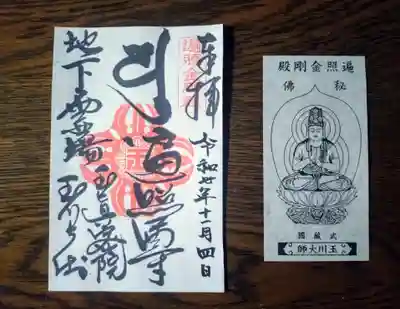 奉拝
令和 年十一月四日
遍照
地下霊場
玉眞密院
玉川大師
遍照金剛殿
秘佛
武蔵國
玉川大師